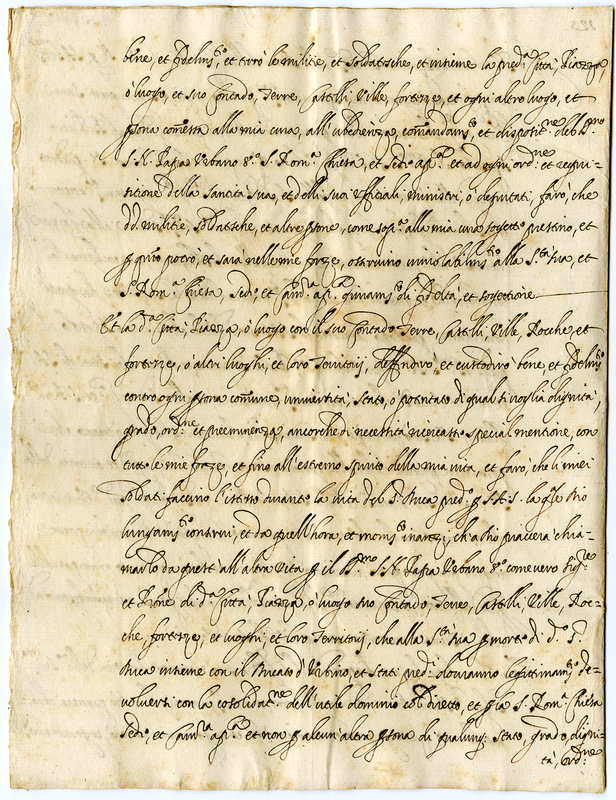 bene, et fidelm.te, et terrò le militie, et soldatesche, et insieme la pred.a Città, Piazza
ò luogo, et suo Contado, Terre, Castelli, Ville, fortezze, et ogni altro luogo, et
p̱sona comessa alla mia cura, all'ubedienza, comandam.to, et disposit.ne del B.mo
S. N. Papa Urbano 8.o S. Rom.a Chiesa, et Sede ap.ca et ad ogni ord.ne et requi-
sitione della Santità sua, et delli suoi Uffitiali, Ministri, ò deputati, farò, che
dd. militie, soldatesche, et altre p̱sone, come sop.a alla mia cura soggette prestino, et
p̱ q.nto potrò, et sarà nelle mie forze, osservino inviolabilm.te alla S.tà sua, et
S. Rom.a Chiesa, Sede, et Cam.ra ap.ca giuram.to di fideltà, et soggettione
Et la d.a Città, Piazza, ò luogo con il suo Contado, Terre, Castelli, Ville, Rocche, et
fortezze, ò altri luoghi, et loro Territorij, deffenderò, et custodirò bene, et fidelm.te
contro ogni p̱sona comune, università, stato, ò potentato di qual si voglia dignità,
grado, ord.ne et preeminenza, ancorche di necessità ricercasse special mentione, con
tutte le mie forze, et fino all'estremo spirito della mia vita, et farò, che li miei
soldati faccino l'istesso durante la vita del S. Duca pred.o p̱ S. A. S. la q.le Dio
lungam.te conservi, et da quell'hora, et mom.to inanzi, ch'a Dio piacerà chia-
marlo da quest'all'altra vita p̱ il B.mo S. N. Papa Urbano 8.o come vero Sig.re
et P̱rone di d.a Città, Piazza, ò luogo suo Contado, Terre, Castelli, Ville, Roc-
che, fortezze, et luoghi, et loro Territorij, che alla S.tà sua p̱ morte di d.o S.
Duca insieme con il Ducato d'Urbino, et stati pred.i dovranno legittimam.te de-
volversi con la cosolidat.ne dell'utile dominio col diretto, et p̱ la S. Rom.a Chiesa
Sede, et Cam.ra ap.ca et non p̱ alcun'altra p̱sona di qualunq; stato, grado, digni-
tà, ord.ne